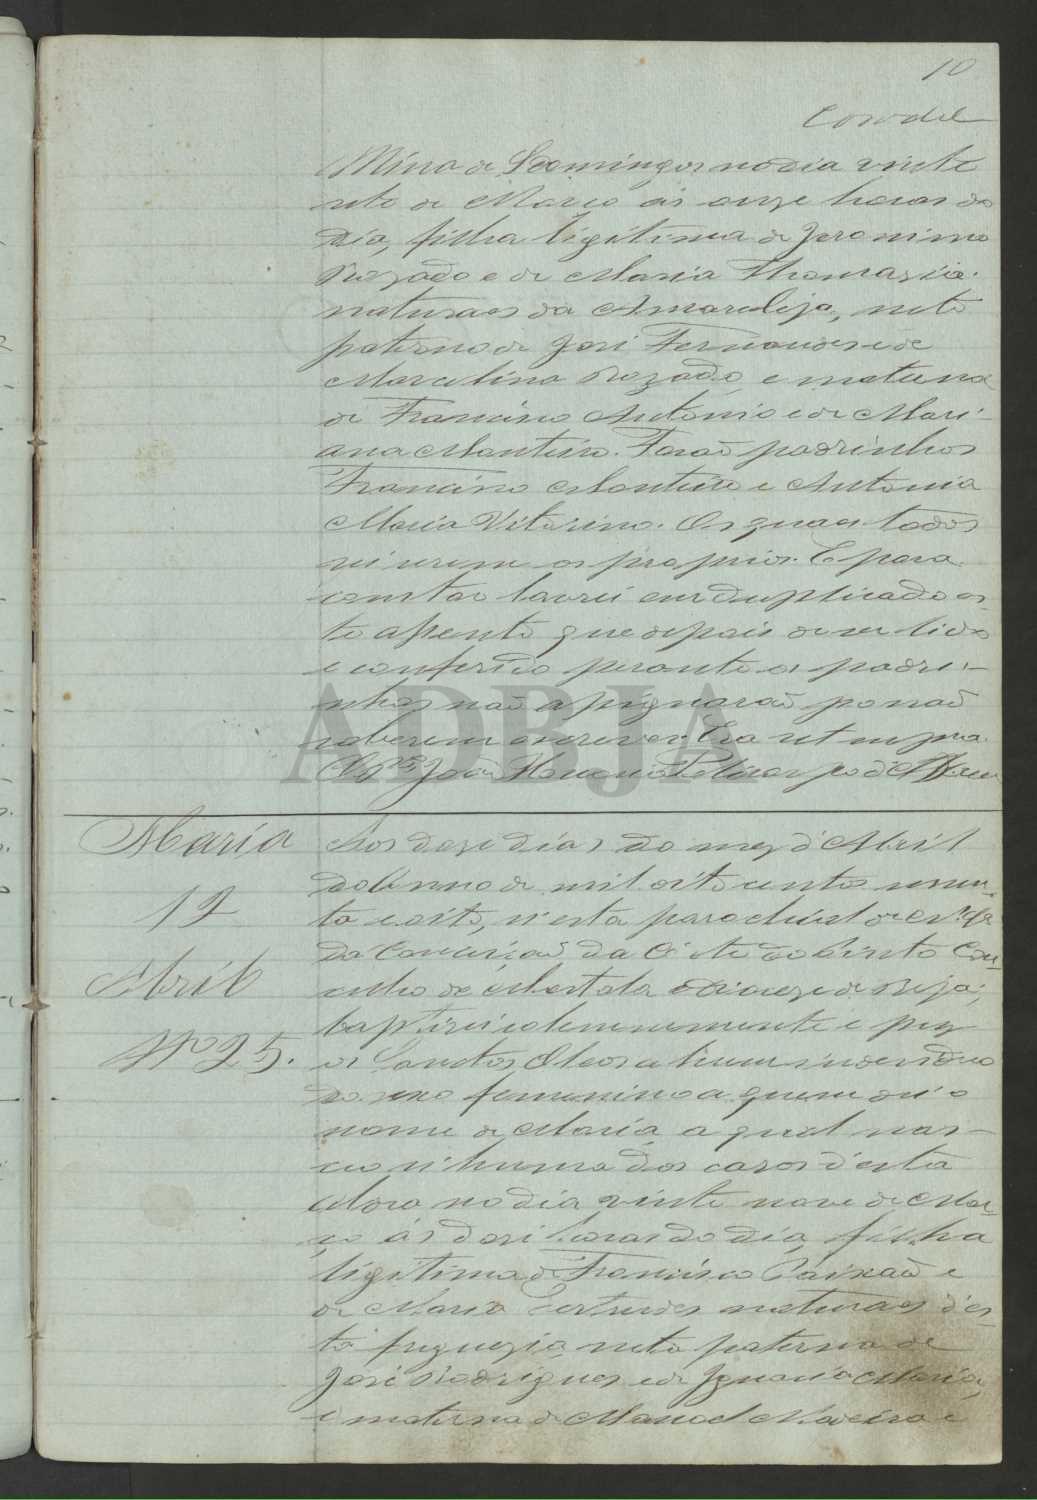 10
Mina de S. Domingos no dia vinte
oito de Março ás onze horas do
dia, filha legitima de Jeronimo
Rozado e de Maria Thomazia
naturaes da Amareleja, neta
paterna de José Fernandes e de
Marcelina Rozado, e materna
de Francisco Antonio e de Mari-
ana Monteiro. Forão padrinhos
Francisco Monteiro e Antonia
Maria Vitorino. Os quaes todos
sei serem os proprios. E para
constar lavrei em duplicado es-
te assento que depois de ser lido
e conferido perante os padri-
nhos não assignarão por não
saberem escrever. Era ut supra.
O João
ADBJA
Maria
12
Abril
Nº 25.
Aos doze dias do mez d'Abril
do Anno de mil oito centos noven-
ta e oito, n'esta parochial de N. Sra
da Conceição da Corte do Pinto Con-
celho de Mertola Diocese de Beja,
baptizei solemnemente e puz
os Santos Oleos a hum individuo
do sexo femenino a quem dei o
nome de Maria, a qual nas-
ceo n'huma das casas d'esta
Aldea no dia vinte nove de Mar-
ço ás dose horas do dia, filha
legitima de Francisco Paixão e
de Maria Gertrudes naturaes d'es-
ta freguezia, neta paterna de
José Rodrigues e de Ignacia Maria,
e materna de Manoel Madeira e